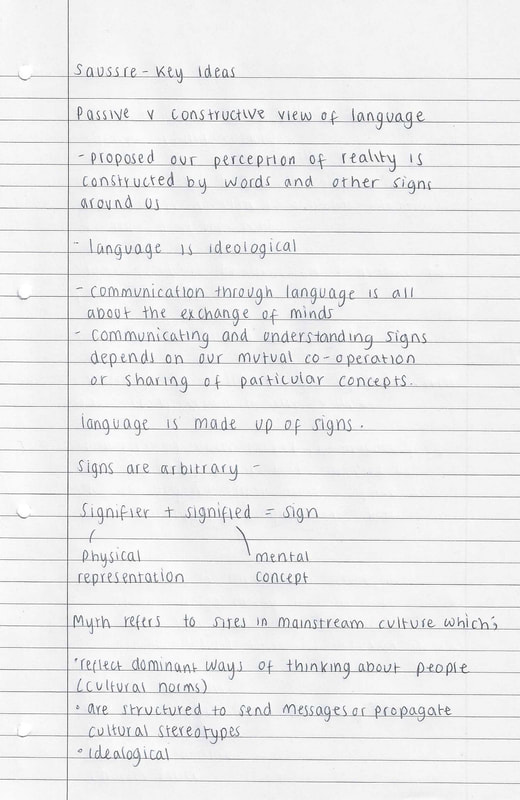 Saussre - Key Ideas
Passive v constructive view of language
- proposed our perception of reality is
constructed by words and other signs
around us
- language is ideological
- communication through language is all
about the exchange of minds
- communicating and understanding signs
depends on our mutual co-operation
or sharing of particular concepts.
language is made up of signs.
Signs are arbitrary -
Signifier + signified = sign
Physical mental
representation concept
Myth refers to sites in mainstream culture which;
• reflect dominant ways of thinking about people
(cultural norms)
• are structured to send messages or propagate
cultural stereotypes
• idealogical